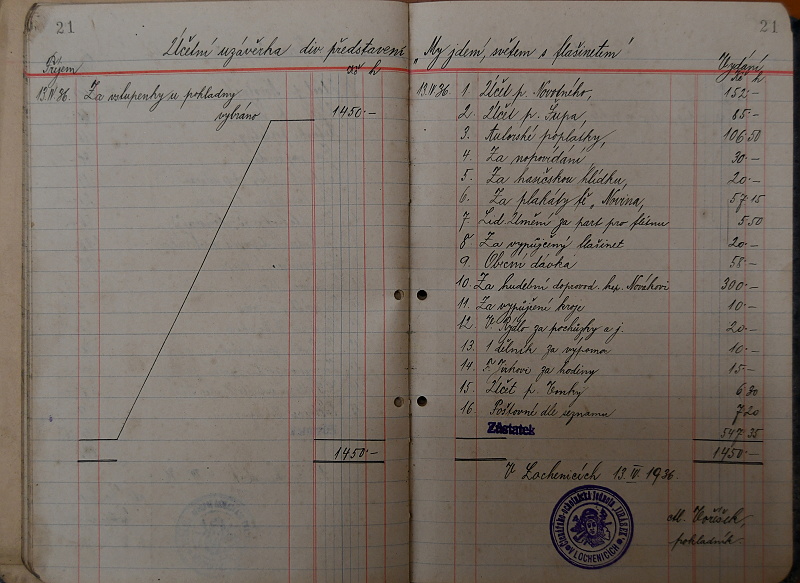 21
Účetní uzávěrka div představení
Příjem
Kč h
13.IV.36. Za vstupenky u pokladny
vybráno 1450·—
1450·—
21
"My jdem, světem s flašinetem"
Vydání
Kč h
13.IV.36. 1. Účet p. Novotného, 152·—
2. Účet p. Šupa, 85·—
3. Autorské poplatky, 106·50
4. Za napovídání, 30·—
5. Za hasičskou hlídku, 20·—
6. Za plakáty fě „Novina„ 57·15
7. Lid. Umění za part pro flétnu 5.50
8. Za vypůjčený flašinet 20·—
9. Obecní dávka 58·—
10. Za hudební doprovod. kap. Novákovi 300·—
11. Za vypůjčení kroje 10·—
12. za pochůzky a j. 20·—
13. 1 dělník za výpomoc 10·—
14. za hodiny 15·—
15. Účet p. 6·30
16. Poštovné dle seznamu 7·20
Zůstatek 547·35
1450·—
V Lochenicích 13.IV.1936.
LOCHENICÍCH
M. Voříšek,
pokladník.